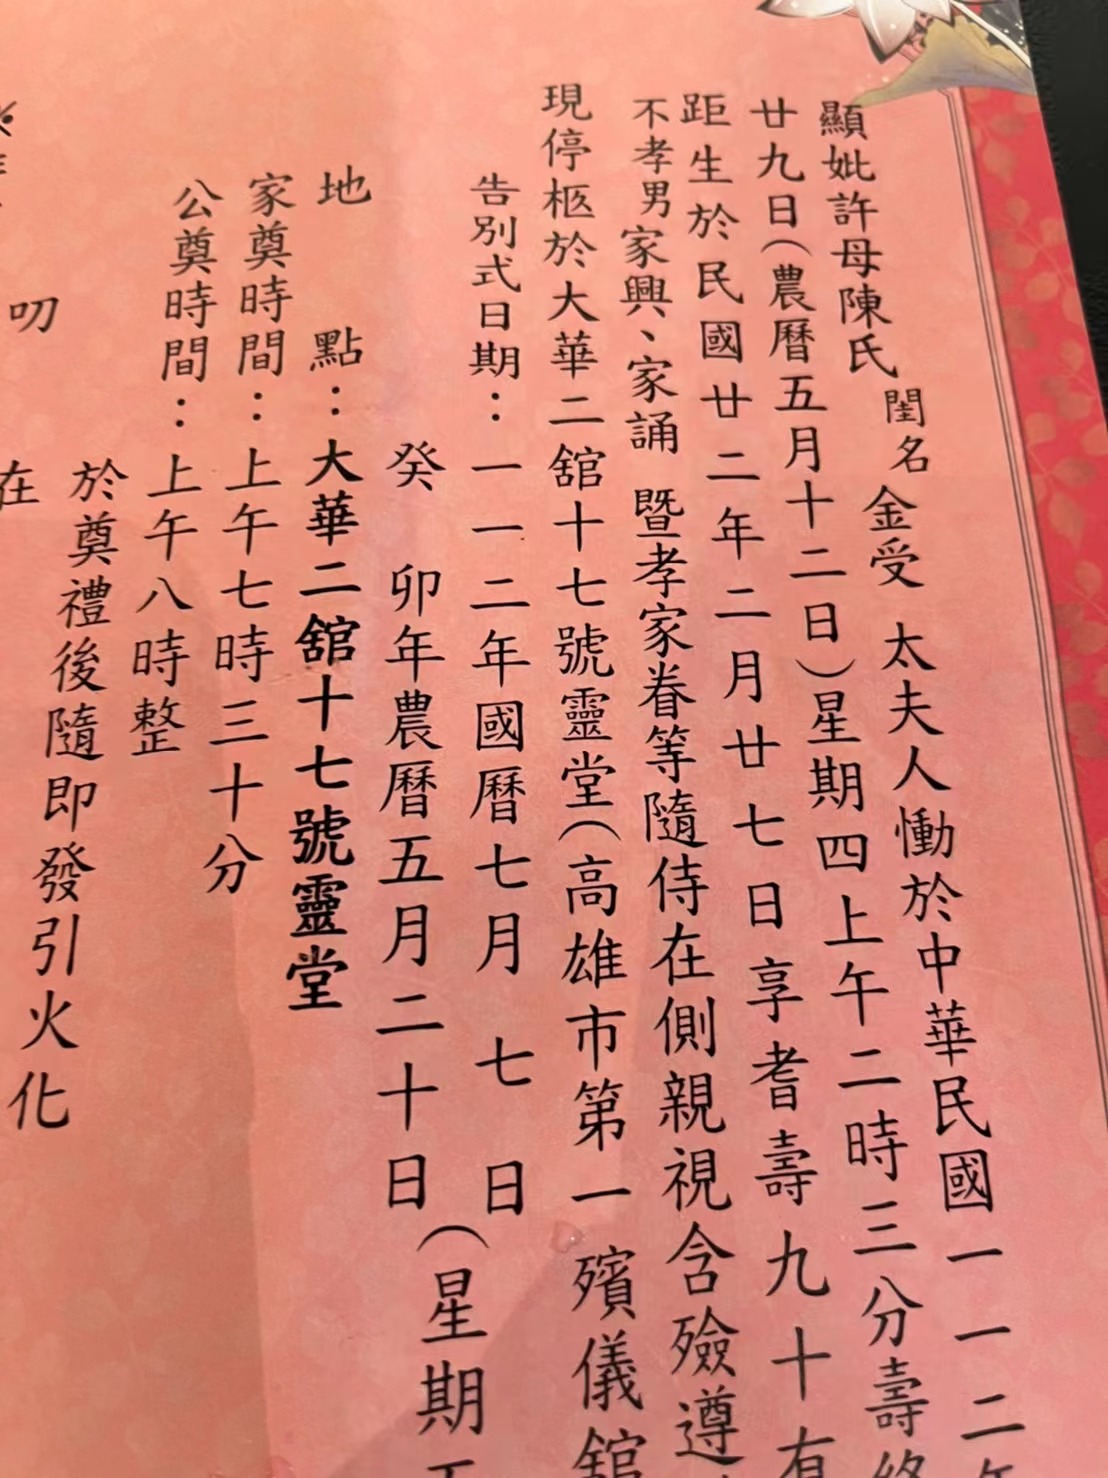 顯妣許母陳氏 閨名 金受 太夫人慟於中華民國一一二年
廿九日（農曆五月十二日）星期四上午二時三分壽終
距生於民國廿二年二月廿七日享耆壽九十有
不孝男家興、家誦 暨孝家眷等隨侍在側親視含殮遵
現停柩於大華二舘十七號靈堂（高雄市第一殯儀舘
告別式日期：一一二年國曆七月 七 日
癸 卯年農曆五月二十日（星期五
地 點：大華二舘十七號靈堂
家奠時間：上午七時三十分
公奠時間：上午八時整
於奠禮後隨即發引火化
叨 在